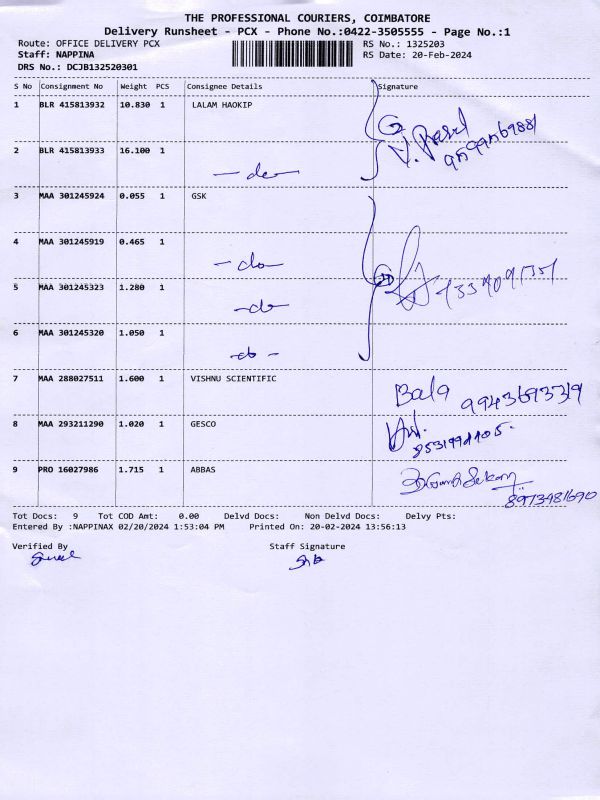 THE PROFESSIONAL COURIERS, COIMBATORE
Delivery Runsheet - PCX - Phone No.:0422-3505555 - Page No.:1
Route: OFFICE DELIVERY PCX RS No.: 1325203
Staff: NAPPINA RS Date: 20-Feb-2024
DRS No.: DCJB132520301
S No Consignment No Weight PCS Consignee Details Signature
1 BLR 415813932 10.830 1 LALAM HAOKIP
2 BLR 415813933 16.100 1 - do -
3 MAA 301245924 0.055 1 GSK
4 MAA 301245919 0.465 1 - do -
5 MAA 301245323 1.280 1 - do -
6 MAA 301245320 1.050 1 - do -
7 MAA 288027511 1.600 1 VISHNU SCIENTIFIC Bala
8 MAA 293211290 1.020 1 GESCO
9 PRO 16027986 1.715 1 ABBAS
8973481690
Tot Docs: 9 Tot COD Amt: 0.00 Delvd Docs: Non Delvd Docs: Delvy Pts:
Entered By :NAPPINAX 02/20/2024 1:53:04 PM Printed On: 20-02-2024 13:56:13
Verified By Staff Signature